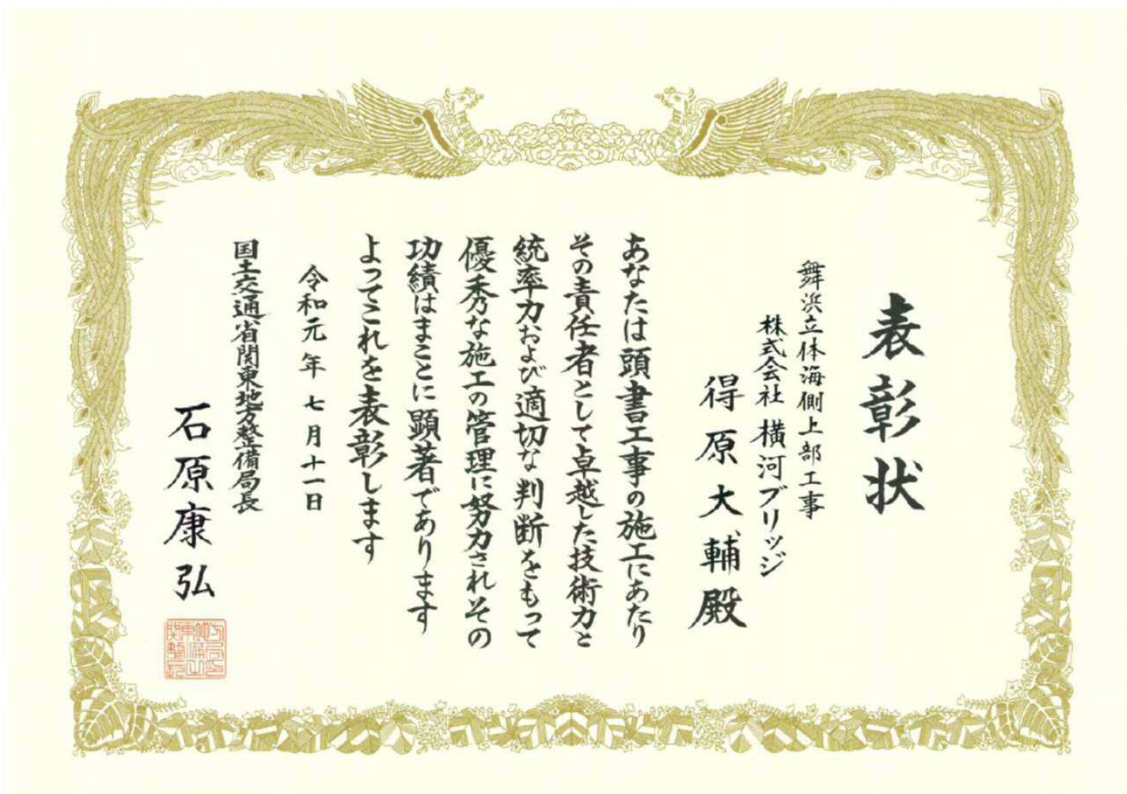 表彰状
舞浜立体海側上部工事
株式会社 横河ブリッジ
得原大輔殿
あなたは頭書工事の施工にあたり
その責任者として卓越した技術力と
統率力および適切な判断をもって
優秀な施工の管理に努力されその
功績はまことに顕著であります
よってこれを表彰します
令和元年七月十一日
国土交通省関東地方整備局長
石原康弘